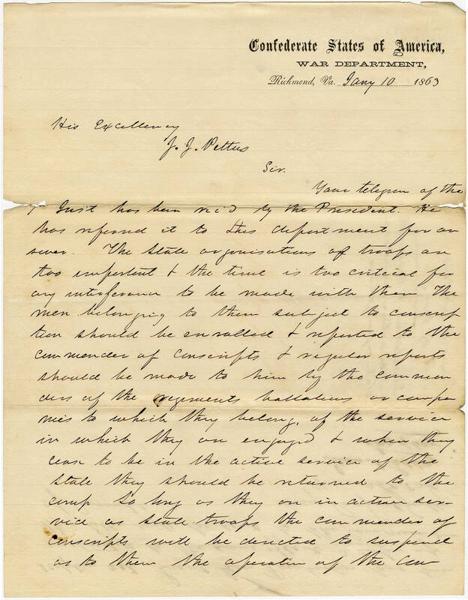 Confederate States of America,
WAR DEPARTMENT,
Richmond, Va. Jany 10 1863
His Excellency
J. J. Pettus
Sir.
Your telegram of the
7 Inst has been rec'd by the President. He
has referred it to this department for an
swer. The State organisations of troops are
too important & the time is too critical for
any interference to be made with them The
men belonging to them subject to conscrip
tion should be enrolled & reported to the
commander of conscripts & regular reports
should be made to him by the comman
ders of the regiments battalions or compa
nies to which they belong, of the service
in which they are engaged & when they
cease to be in the active service of the
State they should be returned to the
camp So long as they are in active ser
vice as State troops the commander of
conscripts will be directed to suspend
as to them the operation of the law